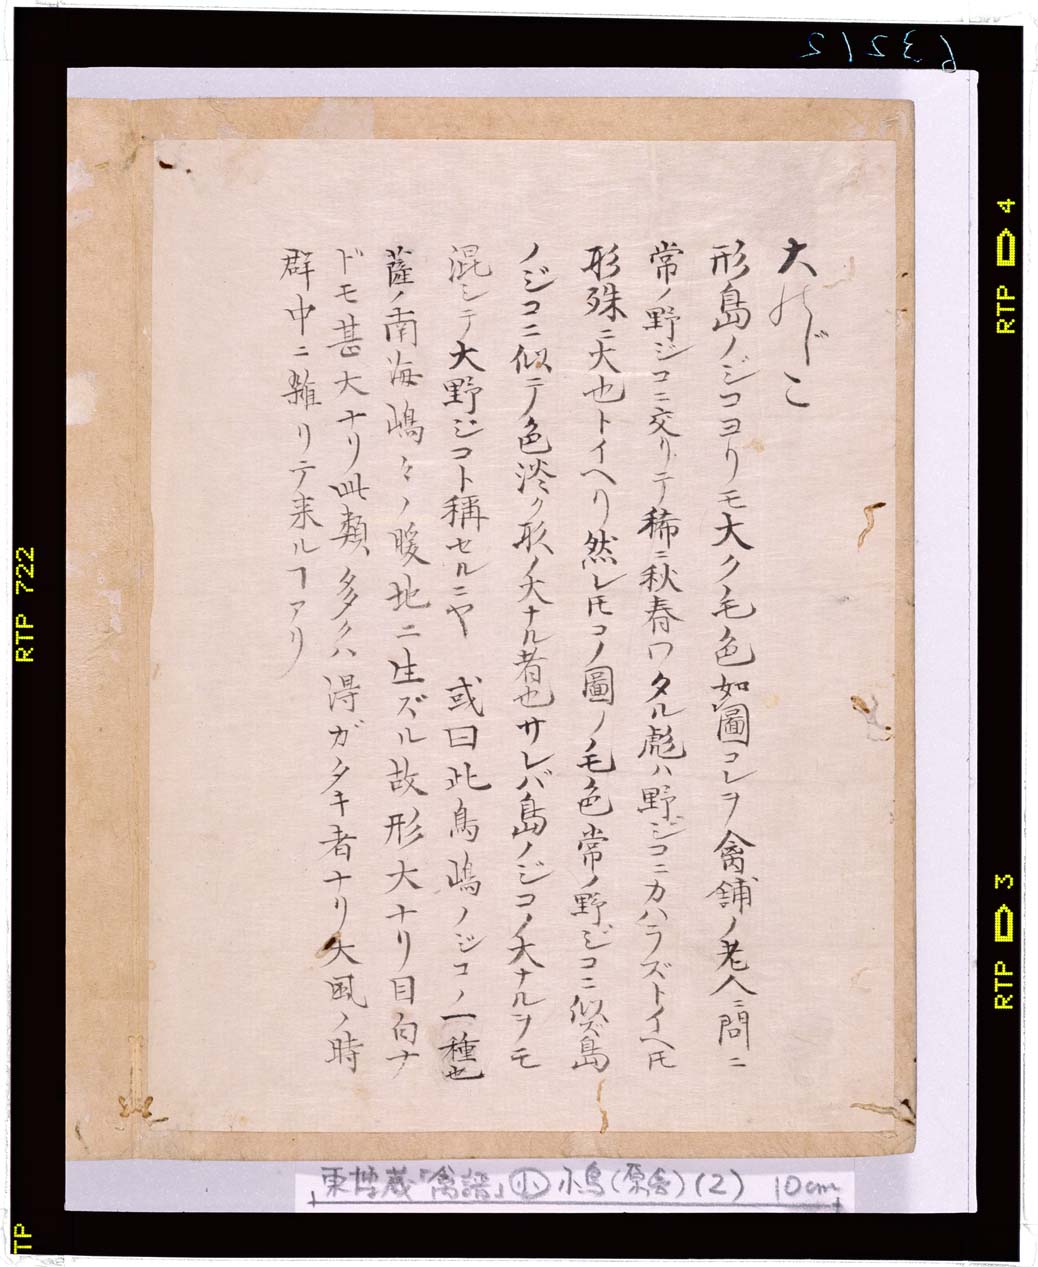 大のじこ
形島ノジコヨリモ大ク毛色如圖コレヲ禽舗ノ老人ニ問ニ
常ノ野ジコニ交リテ稀ニ秋春ワタル彪ハ野ジコニカハラズトイヘ𪜈
形殊ニ大也トイヘリ然レ𪜈コノ圖ノ毛色常ノ野ジコニ似ズ島
ノジコニ似テ色淡ク形ノ大ナル者也サレバ島ノジコノ大ナルヲモ
混シテ大野ジコト稱セルニヤ 或曰此鳥嶋ノジコノ一種也
薩ノ南海嶋々ノ暖地ニ生ズル故形大ナリ目白ナ
ドモ甚大ナリ此類多クハ得ガタキ者ナリ大風ノ時
群中ニ雜リテ来ルヿアリ
63212
RTP 4
RTP 3
RTP 722
TP
東博蔵「禽譜」小 小鳥(原舎)(2) 10cm